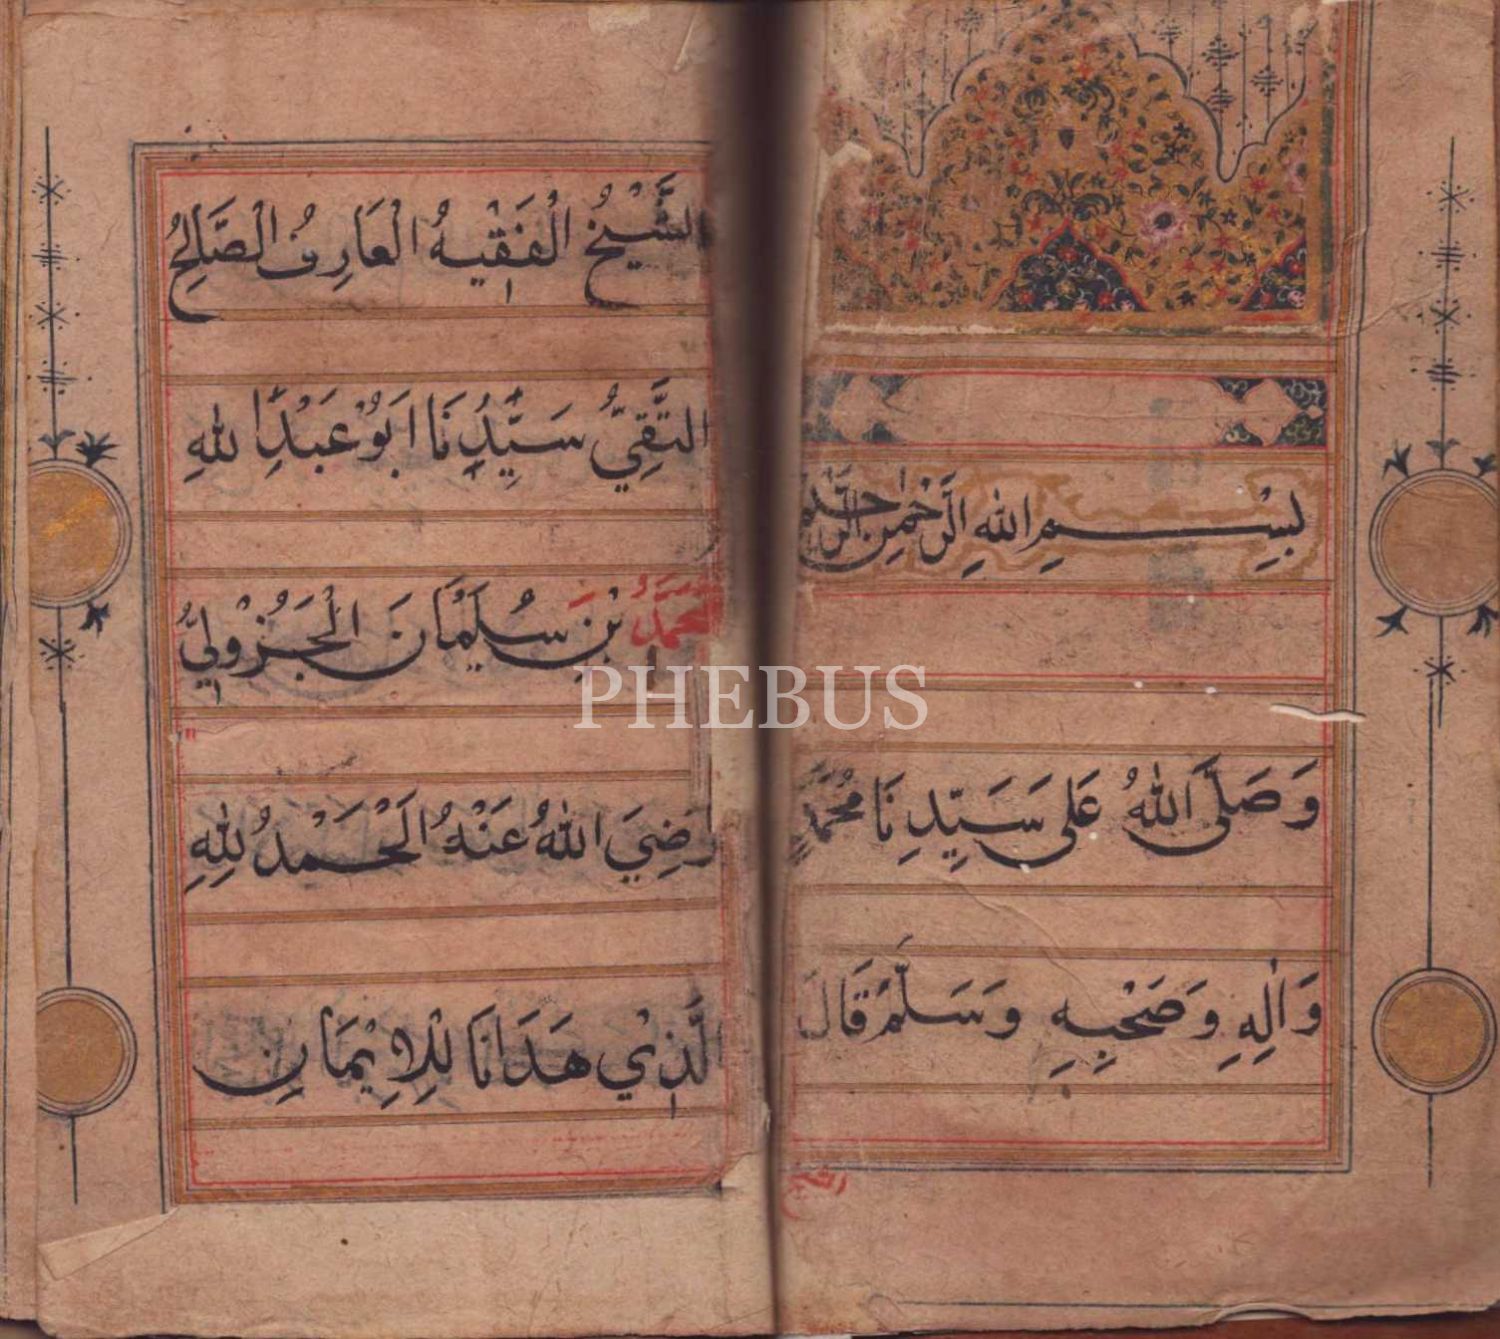 بِسْمِ اللهِ الرَّحْمٰنِ الرَّحِيمِ
وَصَلَّى اللهُ عَلَى سَيِّدِنَا مُحَمَّدٍ
وَاٰلِهِ وَصَحْبِهِ وَسَلَّمَ قَالَ
الشيخ
الشَّيْخُ الْفَقْيهُ الْعَارِفُ الصَّالِحُ
التَّقِيُّ سَيِّدُنَا اَبُوْ عَبْدِ اللهِ
مُحَمَّدُ بْنُ سُلَيْمَانَ الْجَزُوْلِيُّ
رَضِيَ اللهُ عَنْهُ اَلْحَمْدُ لِلهِ
الَّذِيْ هَدَانَا لِلْاِيْمَانِ
PHEBUS